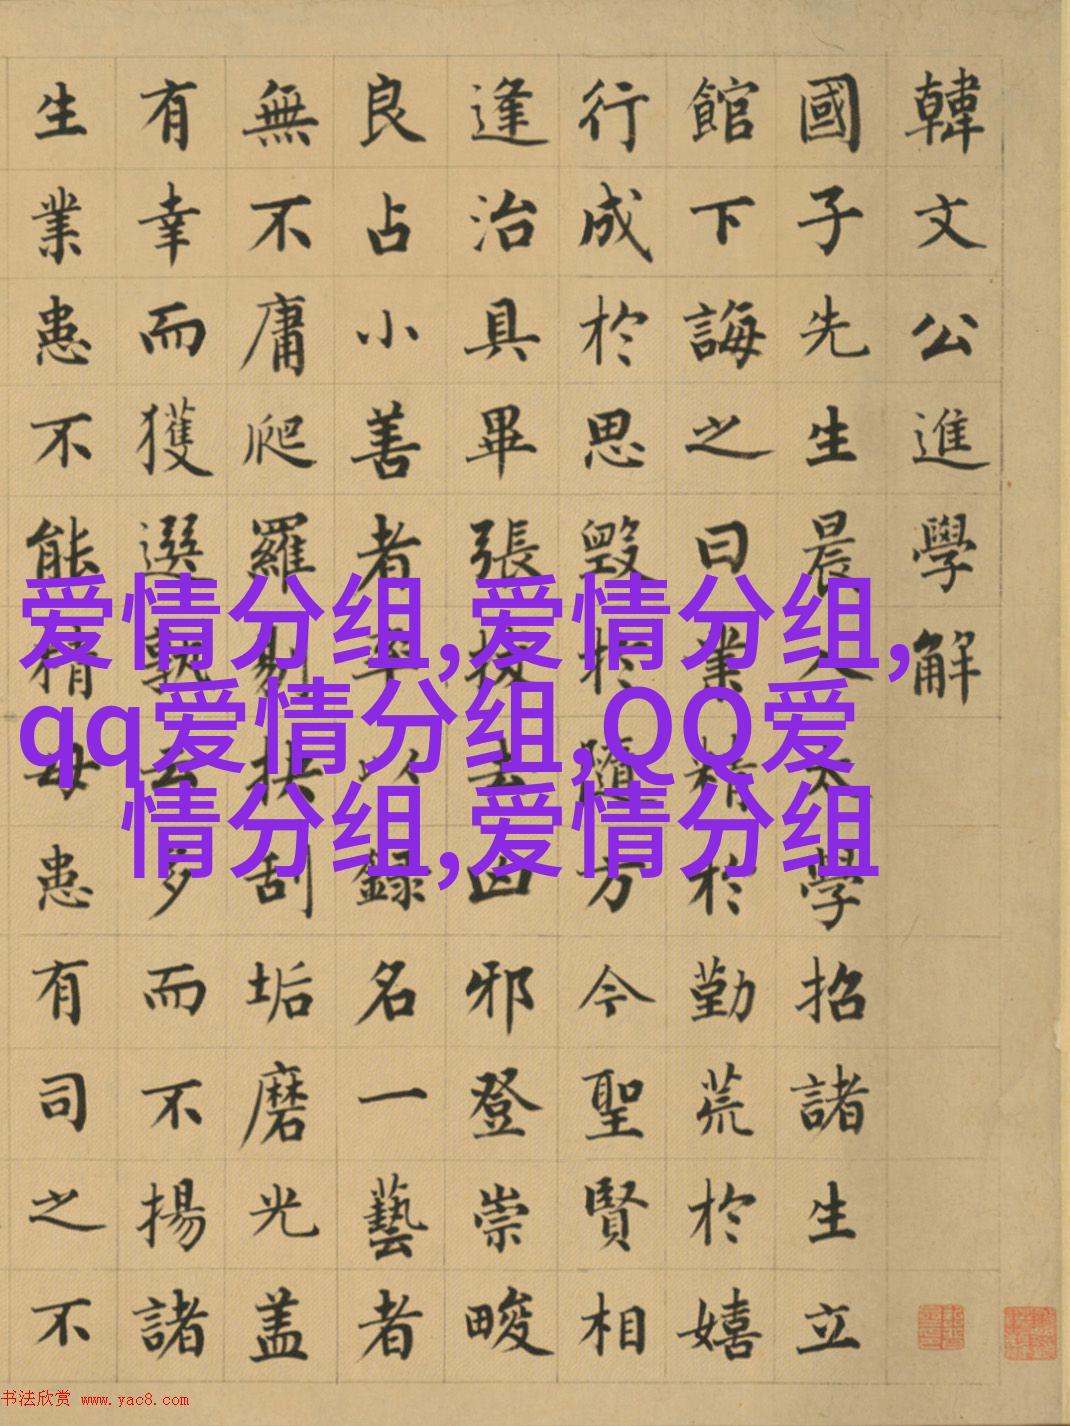 韓文公進學解
國子先生晨入太學招諸生立
館下誨之曰業精於勤荒於嬉
行成於思毀於隨方今聖賢相
逢治具畢張拔去凶邪登崇畯
良占小善者率以録名一藝者
無不庸爬羅剔抉刮垢磨光盖
有幸而獲選孰云多而不揚諸
生業患不能精毋患有司之不
爱情分组,爱情分组,
qq爱情分组,QQ爱
情分组,爱情分组
书法欣赏 www.yac8.com